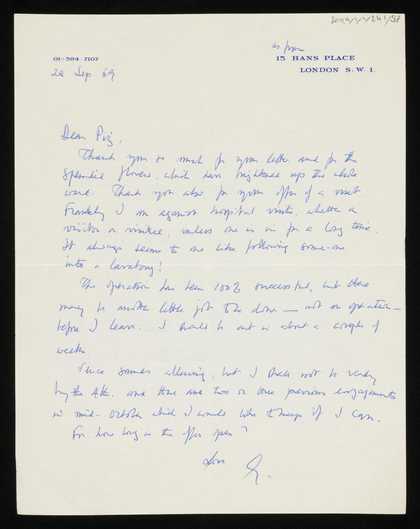 as from
01-584 7107
15 HANS PLACE
LONDON S. W. 1.
22 Sep 69
Dear Pig,
Thank you so much for your letter and for the
splendid flowers, which have brightened up the whole
ward. Thank you also for your offer of a visit.
Frankly I am against hospital visits, whether a
visitor or visitee, unless one is in for a long time.
It always seems to me like following some-one
into a lavatory!
The operation has been 100% successful, but there
may be another little job to be done — not an operation —
before I leave. I should be out in about a couple of
weeks
sounds alluring, but I shall not be ready
by the 4th. and there are two or three previous engagements
in mid-October which I would like to keep if I can.
For how long is the offer open?
Love